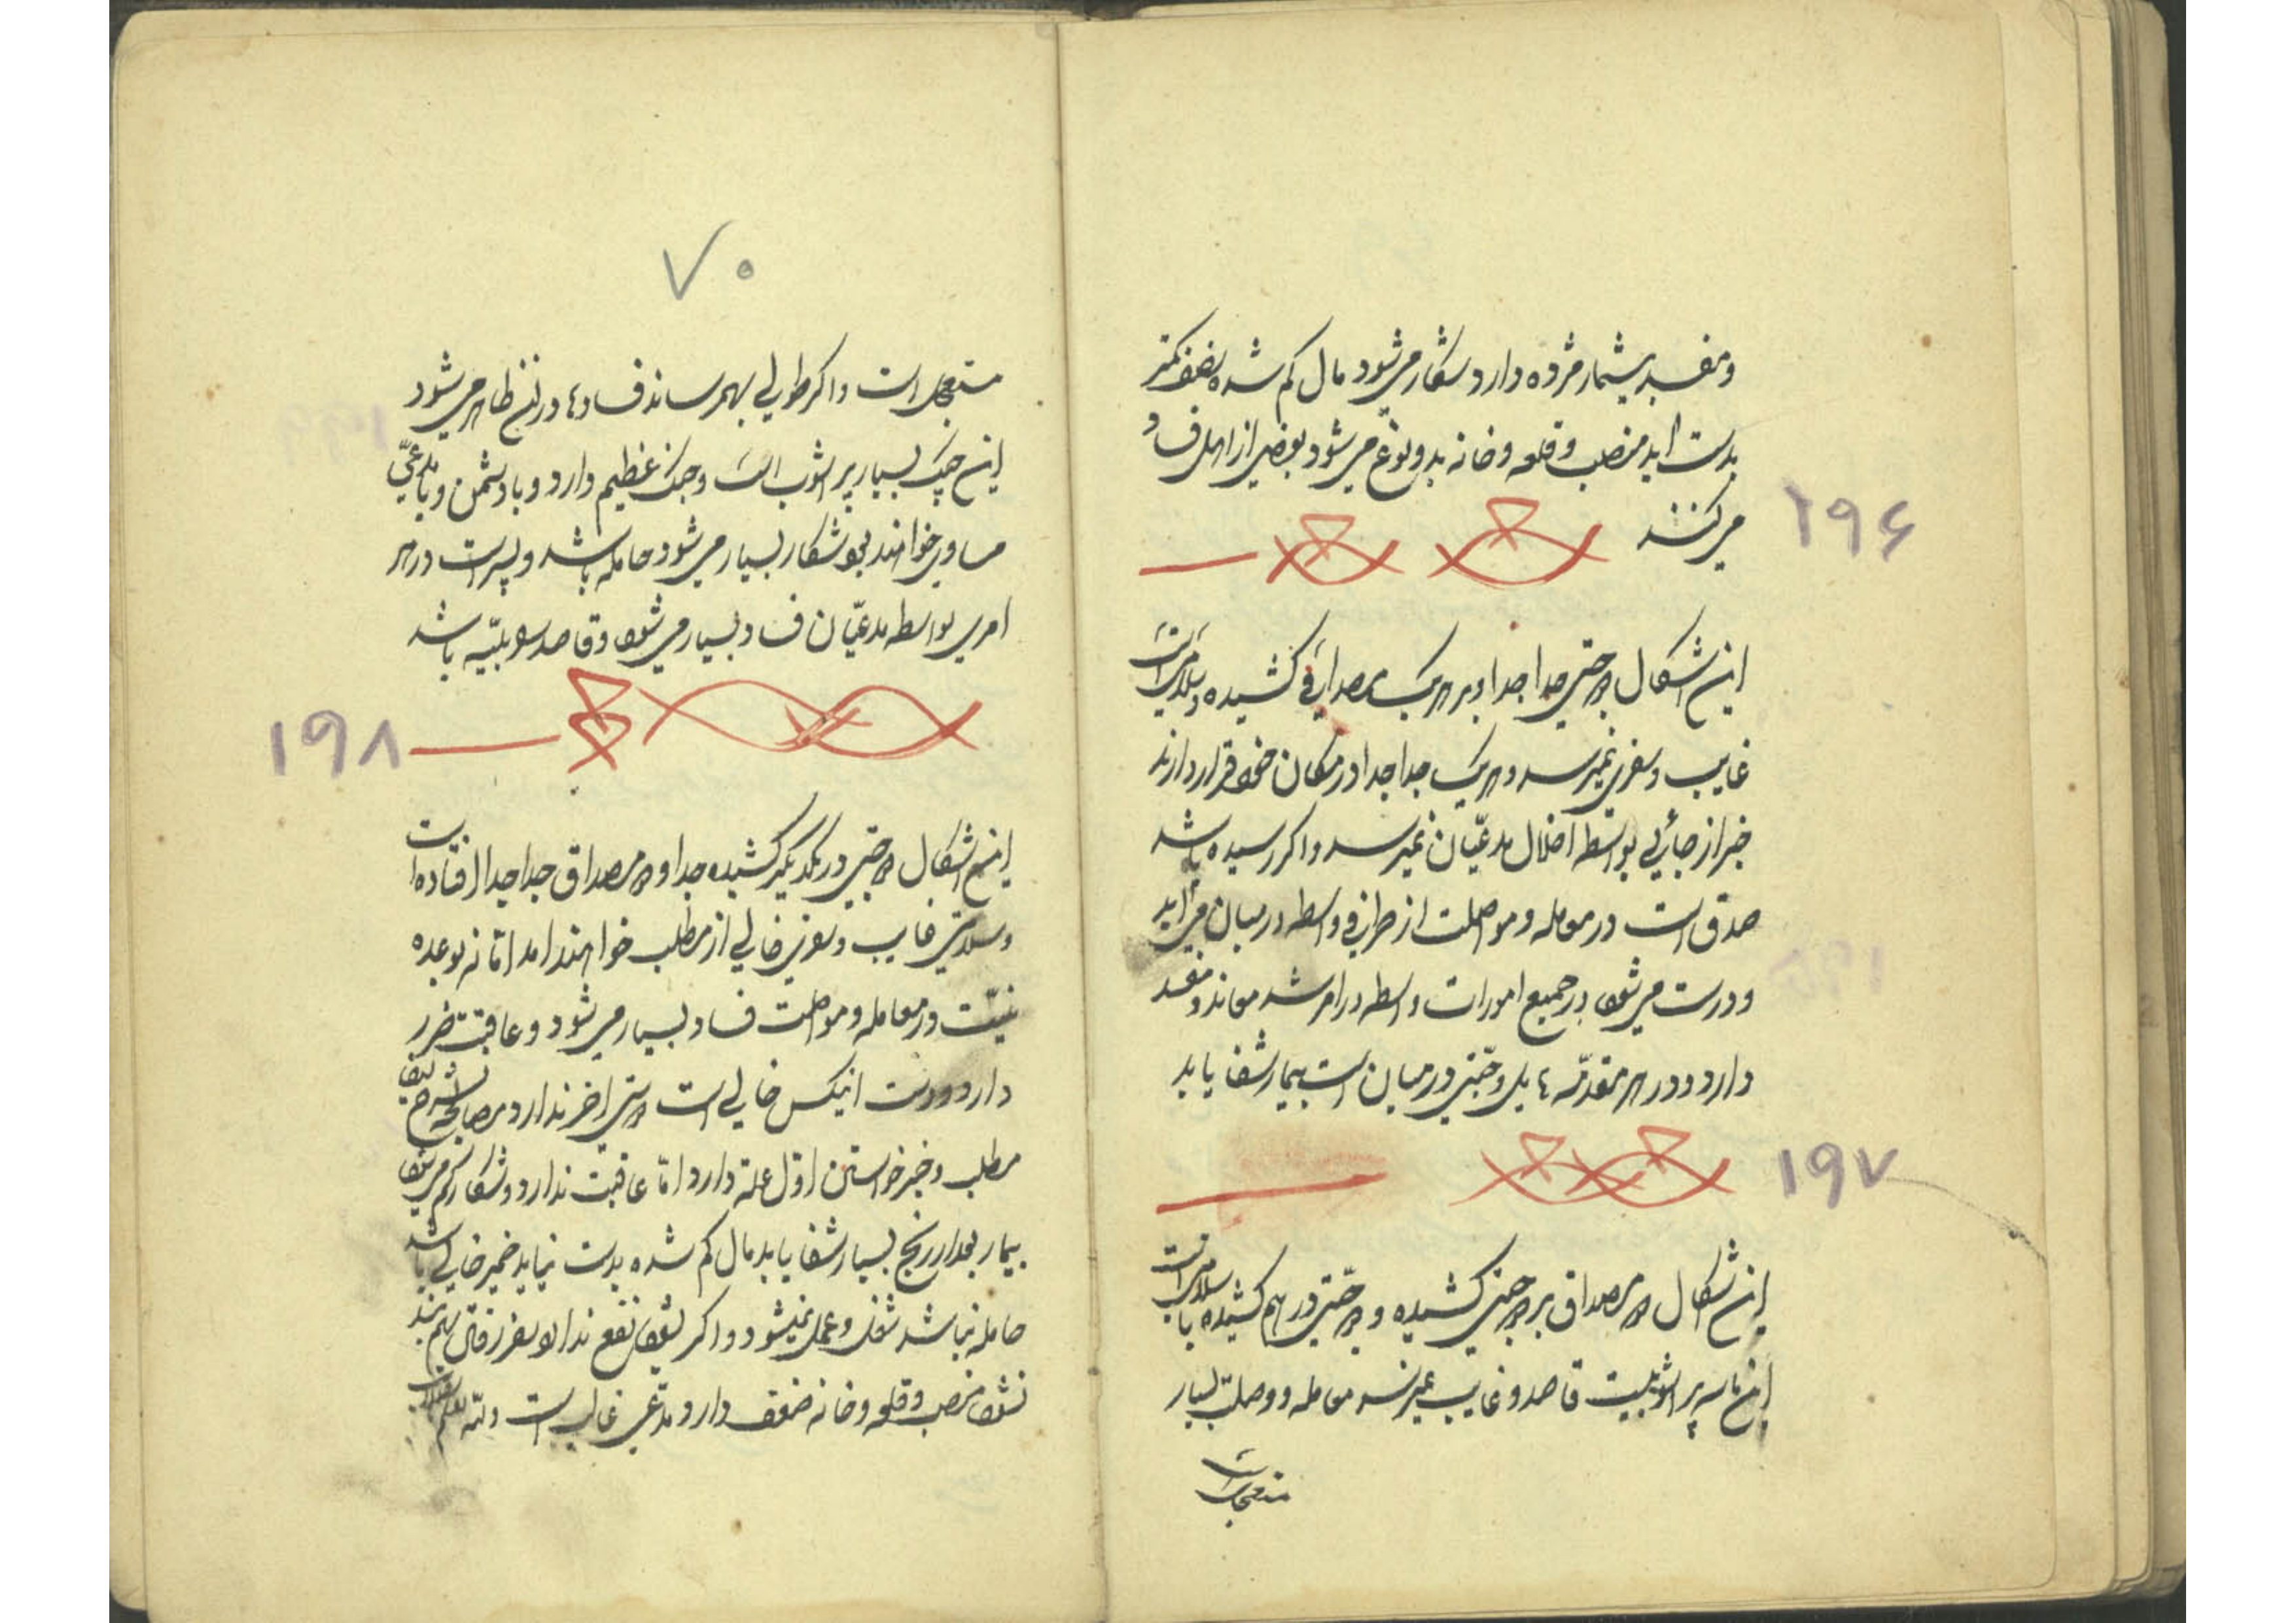 ومفسد بیشمار مژده دارد شکار می‌شود مال کم شده بضعف کمتر
بدست اید منصب وقلعه وخانه بدو نوع می‌شود بعضی از اهل فساد
می‌کنند
۱۹۶
این اشکال دو جفتی جدا جدا وبر هر یک مصداقی کشیده وسلامتی است
غایب وسفری نمیرسد وهر یک جدا جدا در مکان خود قرار دارند
خبر از جائی بواسطه اخلال مدعیان نمیرسد واکر رسیده باشد
صدق است در معامله ومواصلت از طرفی واسطه در میان می‌اید
ودرست می‌شود در جمیع امورات واسطه در امر شد معاند ومفسد
دارد ودر هر مقدمه در میان است بیمار شفا یابد
۱۹۷
این اشکال دو مصداق بر دو جفتی کشیده ودو جفتی در هم کشیده با سلامتی است
این پر اشوبیست قاصد وغایب میرسد معامله ووصلت بسیار
مستعجل است
۷۰
مستعجل است واکر طولی بهمرساند فسادها در این ظاهر می‌شود
این چپک بسیار پر اشوب است وجنک عظیم دارد وبا دشمن وبا مدعی
مساوی خواهند بود شکار بسیار می‌شود حامله باشد وپسر است در هر
امری بواسطه مدعیان فساد بسیار می‌شود وقاصد باشد
۱۹۸
این اشکال دو جفتی در یکدیکر کشیده جدا ودو مصداق جدا جدا افتاده است
وسلامتی غایب وسفری خالی از مطلب خواهند امد اما نه بوعده
نیست در معامله ومواصلت فساد بسیار می‌شود وعاقبت ضرر
دارد ودست انیکس خالی است دوستی اخر ندارد ومصالحه
مطلب وخبر خواستن اول علت دارد اما عاقبت ندارد وشکار کم می‌شود
بیمار بعد از رنج بسیار شفا یابد مال کم شده بدست نیاید ضمیر خالی باشد
حامله نباشد شغل وعمل نمیشود واکر بشود نفع ندارد وسفر رفتن هم
نشود منصب وقلعه وخانه ضعف دارد ومدعی غالب است والله اعلم